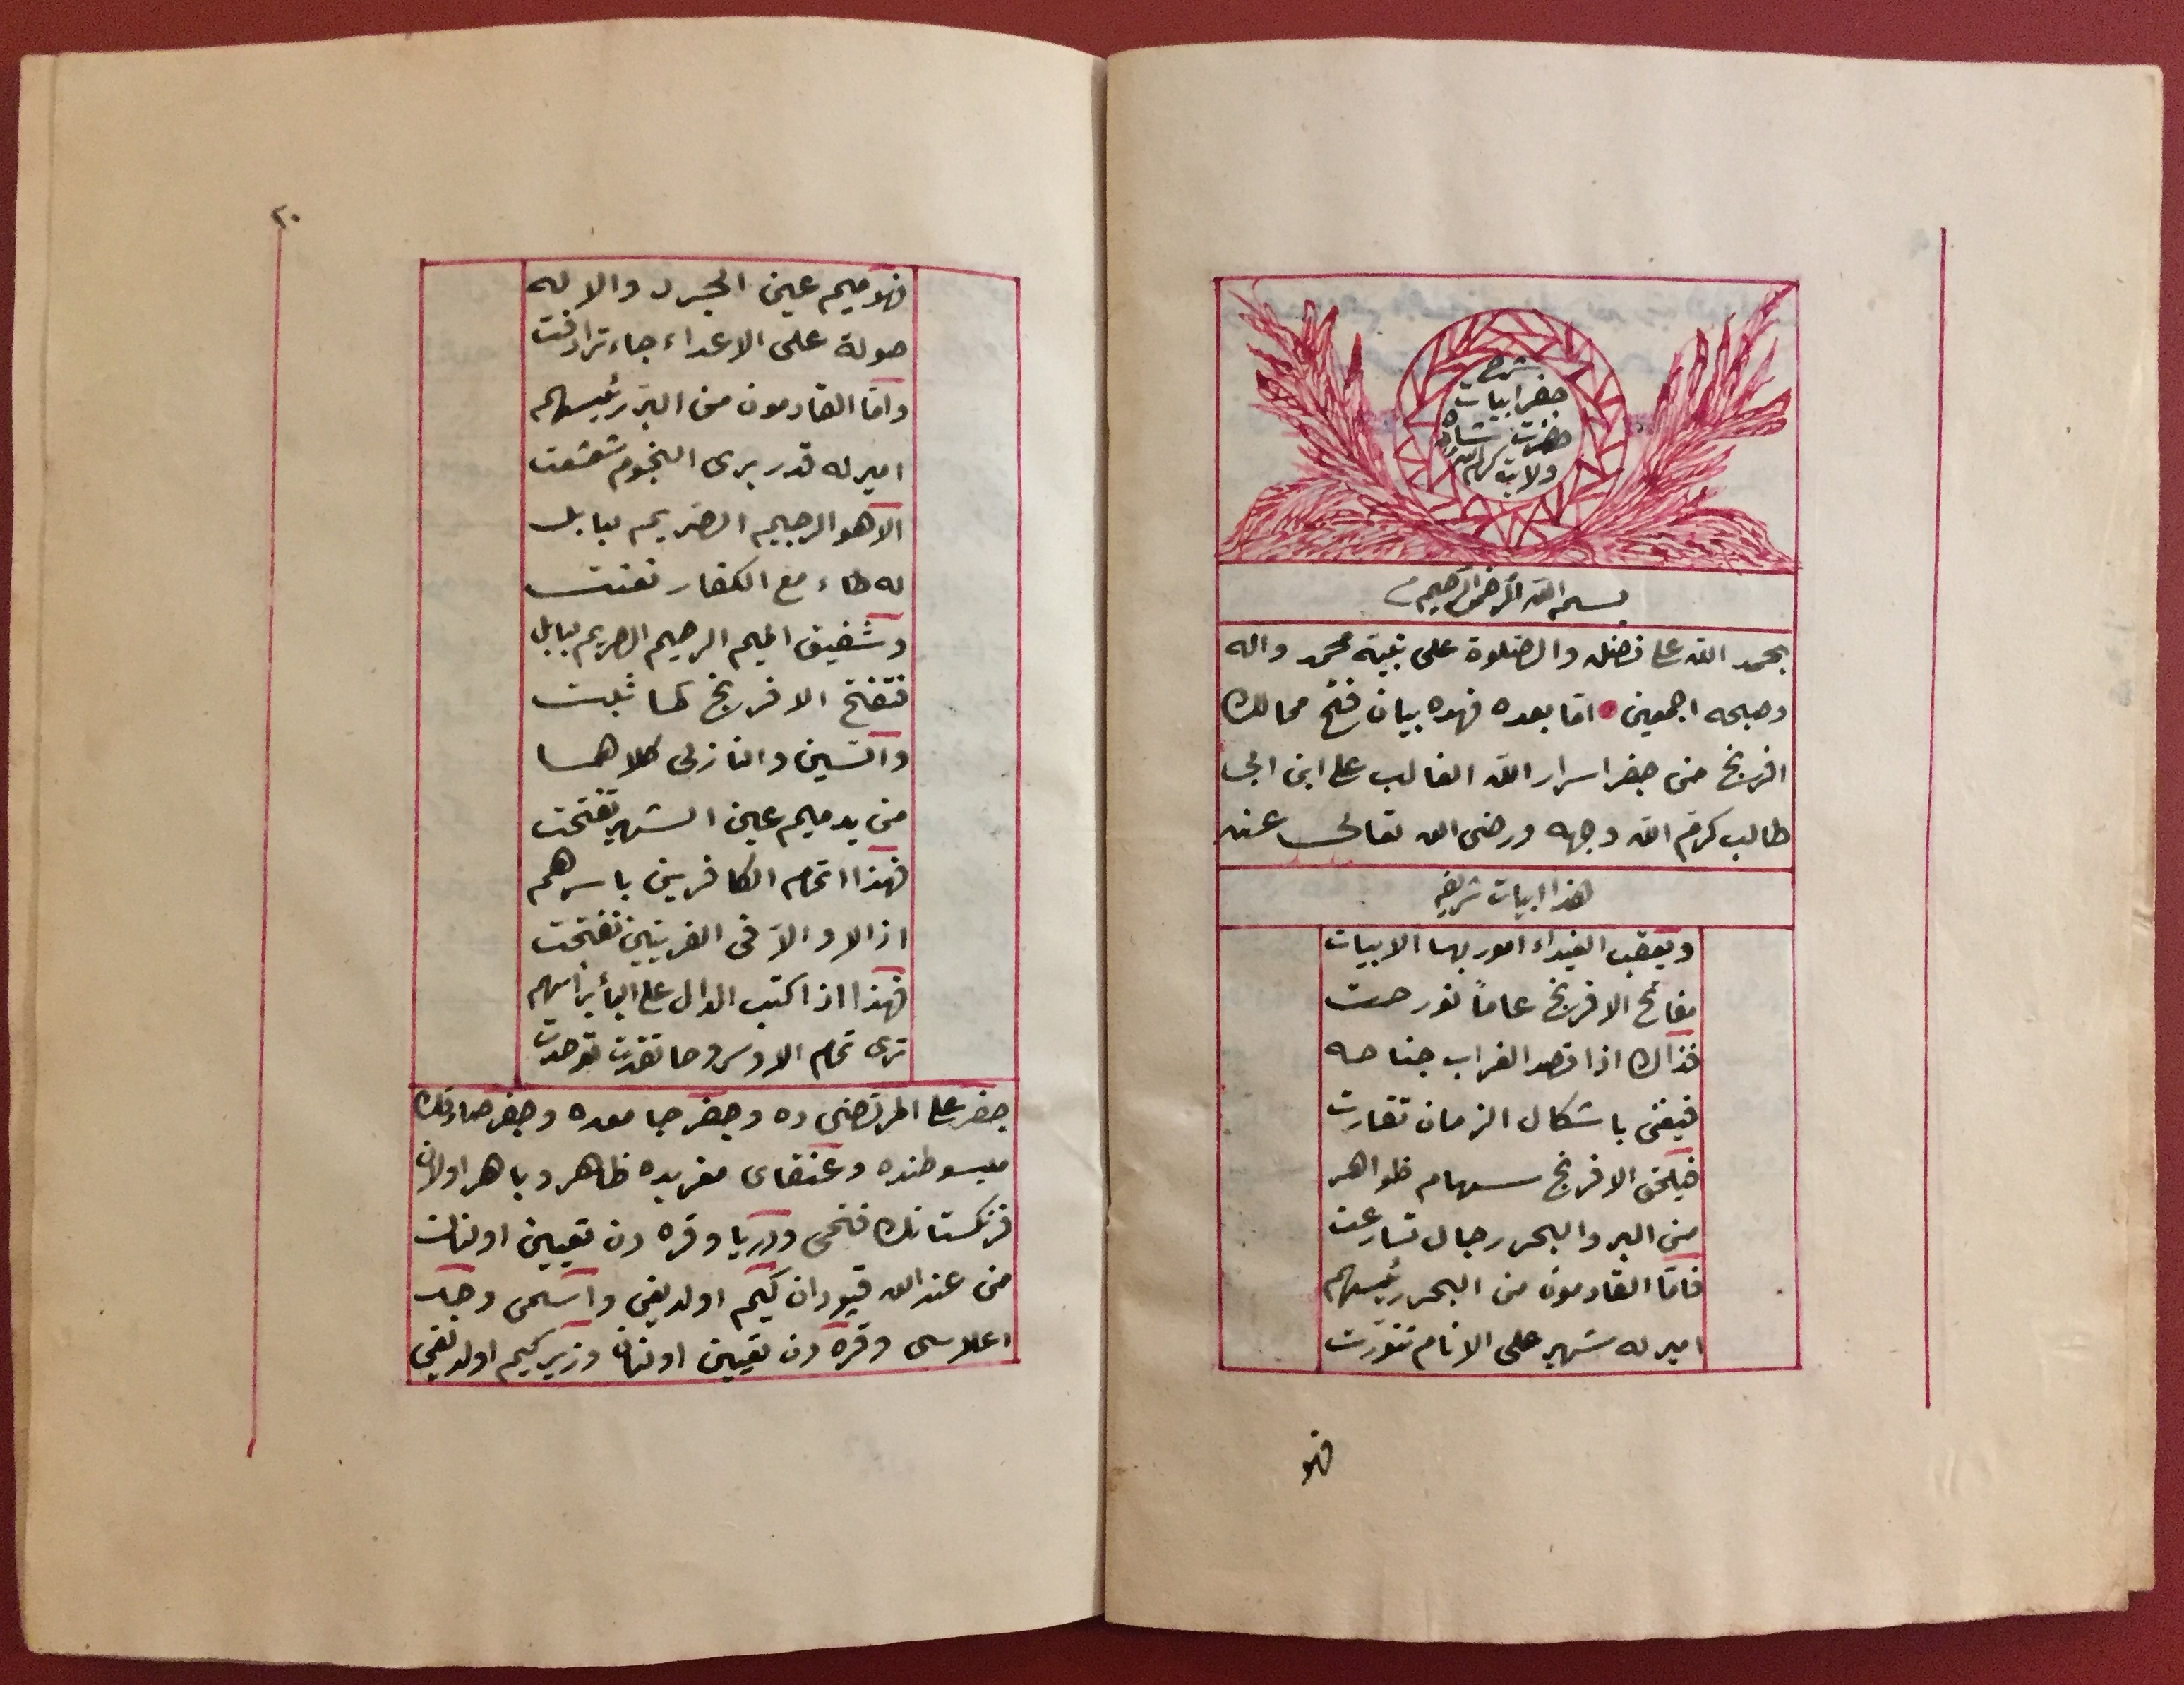 شرح
جفر ابيات
حضرت شاه
ولايت كرم الله
بسم الله الرحمن الرحيم
بحمد الله على فضله والصلوة على نبيه محمد واله
وصبحه اجمعين اما بعده فهده بيان فتح ممالك
افرنج من جفر اسرار الله الغالب على ابن ابى
طالب كرم الله وجهه ورضى الله تعالى عنه
هذا ابيات شريفه
ويعقب الغيداء امور بها الابيات
مفاتح الافرنج عاماً نورحت
فذاك اذا قصد الغراب جناحه
فيفنى باشكال الزمان تقارت
فيلحق الافرنج سهام ظواهر
من البر والبحر رجال تسارعت
فامّا القادمون من البحر رئيسهم
امير له شهير على الانام تنوّرت
فهو
٢٠
فهو ميم عين الجرد والا له
صولة على الاعداء جاء ترادفت
وامّا القادمون من البرّ رئيسهم
امير له قدر يرى النجوم تشعشعت
الا هو الرحيم الضريم ببابل
له طاء مع الكفار تفنت
وشفيق الميم الرحيم الضريم ببابل
فتفتح الافرنج كما ثبت
والسين والنازلى كلاهما
من يد ميم عين الشهير تفتحت
فهذا اتمام الكافرين باسرهم
اذ الا والا فى الفريتين تفتحت
فهذا اذا كتب الدال على الباء براسهم
ترى تمام الاروس وما تفرت توحدت
جفر على المرتضى ده وجفر جامعده وجفر صادقك
مبسوطنده وعنقاى مغربده ظاهر وباهر اولان
فرنكستانك فتحى ودريا وقره دن تعيين اولنان
من عند الله قپودان كيم اولديغى واسمى وجدّ
اعلاسى وقره دن تعيين اولنان وزير كيم اولديغى